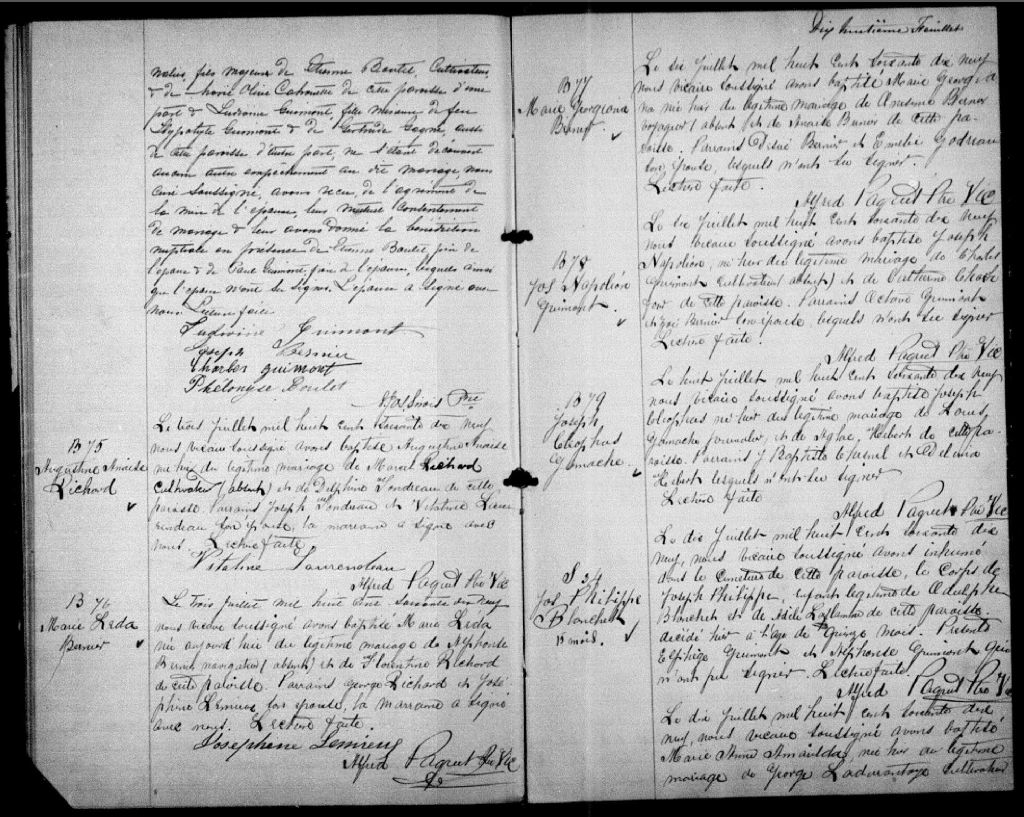 malier, fils majeur de Etienne Boulet, Cultivateur
& de Marie Olive Cabouette de cette paroisse d'une
part & Ludivine Guimont fille mineure de feu
Hyppolyte Guimont & de Gertrude Gagné, aussi
de cette paroisse d'autre part, ne s'étant découvert
aucun autre empechement au dit mariage, nous
curé soussigné, avons reçu, de l'agrément de
la mère de l'épouse leur mutuel consentement
de mariage & leur avons donné la bénédiction
nuptiale en présence de Etienne Boulet, père de
l'époux & de Paul Guimond, frère de l'épouse, lesquels ainsi
que l'époux n'ont su signer. L'épouse a signé avec
nous. Lecture faite
Ludivine Guimont
Joseph Bernier
Charles Guimont
Phélonise Boulet
Ptre
B 75
Augustine Anaïse
Richard
Le trois juillet mil huit cent soixante dix neuf
nous vicaire soussigné avons baptisé Augustine Anaïse
née hier du légitime mariage de Marcel Richard
cultivateur (absent) et de Delphine Fondreau de cette
paroisse. Parrains Joseph Gondreau et Vitaline Lau
rendeau son épouse, la marraine a signé avec
nous. Lecture faite
Vitaline Laurendeau
Alfred Paquet Ptre Vic
B 76
Marie Leda
Bernier
Le trois juillet mil huit cent soixante dix neuf
nous vicaire soussigné avons baptisé Marie Leda
née aujourd'hui du légitime mariage de Alphonse
Bernier navigateur (absent) et de Florentine Richard
de cette paroisse. Parrains George Richard et José
phine Lemieux son épouse, la marraine a signé
avec nous. Lecture faite.
Josephine Lemieux
Alfred Paquet Ptre Vic
Dix huitième Feuillet
B 77
Marie Georgiana
Bernier
Le dix juillet mil huit cent soixante dix neuf
nous vicaire soussigné avons baptisé Marie Georgia
na née hier du légitime mariage de Anselme Bernier
voyageur (absent) et de Anaïse Bernier de cette pa
roisse. Parrains Désiré Bernier et Emélie Godreau
son épouse, lesquels n'ont su signer.
Lecture faite.
Alfred Paquet Ptre Vic
B 78
Jos Napoléon
Guimont
Le dix juillet mil huit cent soixante dix neuf
nous vicaire soussigné avons baptisé Joseph
Napoléon, né hier du légitime mariage de Charles
Guimont cultivateur (absent) et de Catherine Chabo
de cette paroisse. Parrains Octave Guimont
et Zoé Bernier son épouse, lesquels n'ont su signer
Lecture faite.
Alfred Paquet Ptre Vic
B 79
Joseph
Cleophas
Gamache
Le huit juillet mil huit cent soixante dix neuf
nous vicaire soussigné avons baptisé Joseph
Cleophas né hier du légitime mariage de Louis
Gamache journalier, et de Aglaé Hebert de cette pa
roisse. Parrains J Baptiste et Edelvina
Hebert lesquels n'ont su signer
Lecture faite
Alfred Paquet Ptre Vic
S 34
Jos Philippe
Blanchet
15 mois
Le dix juillet mil huit cent soixante dix
neuf, nous vicaire soussigné avons inhumé
dans le cimetière de cette paroisse, le corps de
Joseph Philippe, enfant légitime de Adelphe
Blanchet et de Adèle de cette paroisse
décédé hier à l'âge de quinze mois. Présents
Elphège Guimont et Alphonse Guimont qui
n'ont pu signer. Lecture faite.
Alfred Paquet Ptre Vic
Le dix juillet mil huit cent soixante dix
neuf, nous vicaire soussigné avons baptisé
Marie Anne Amanda, née hier du légitime
mariage de George Laduantaye cultivateur